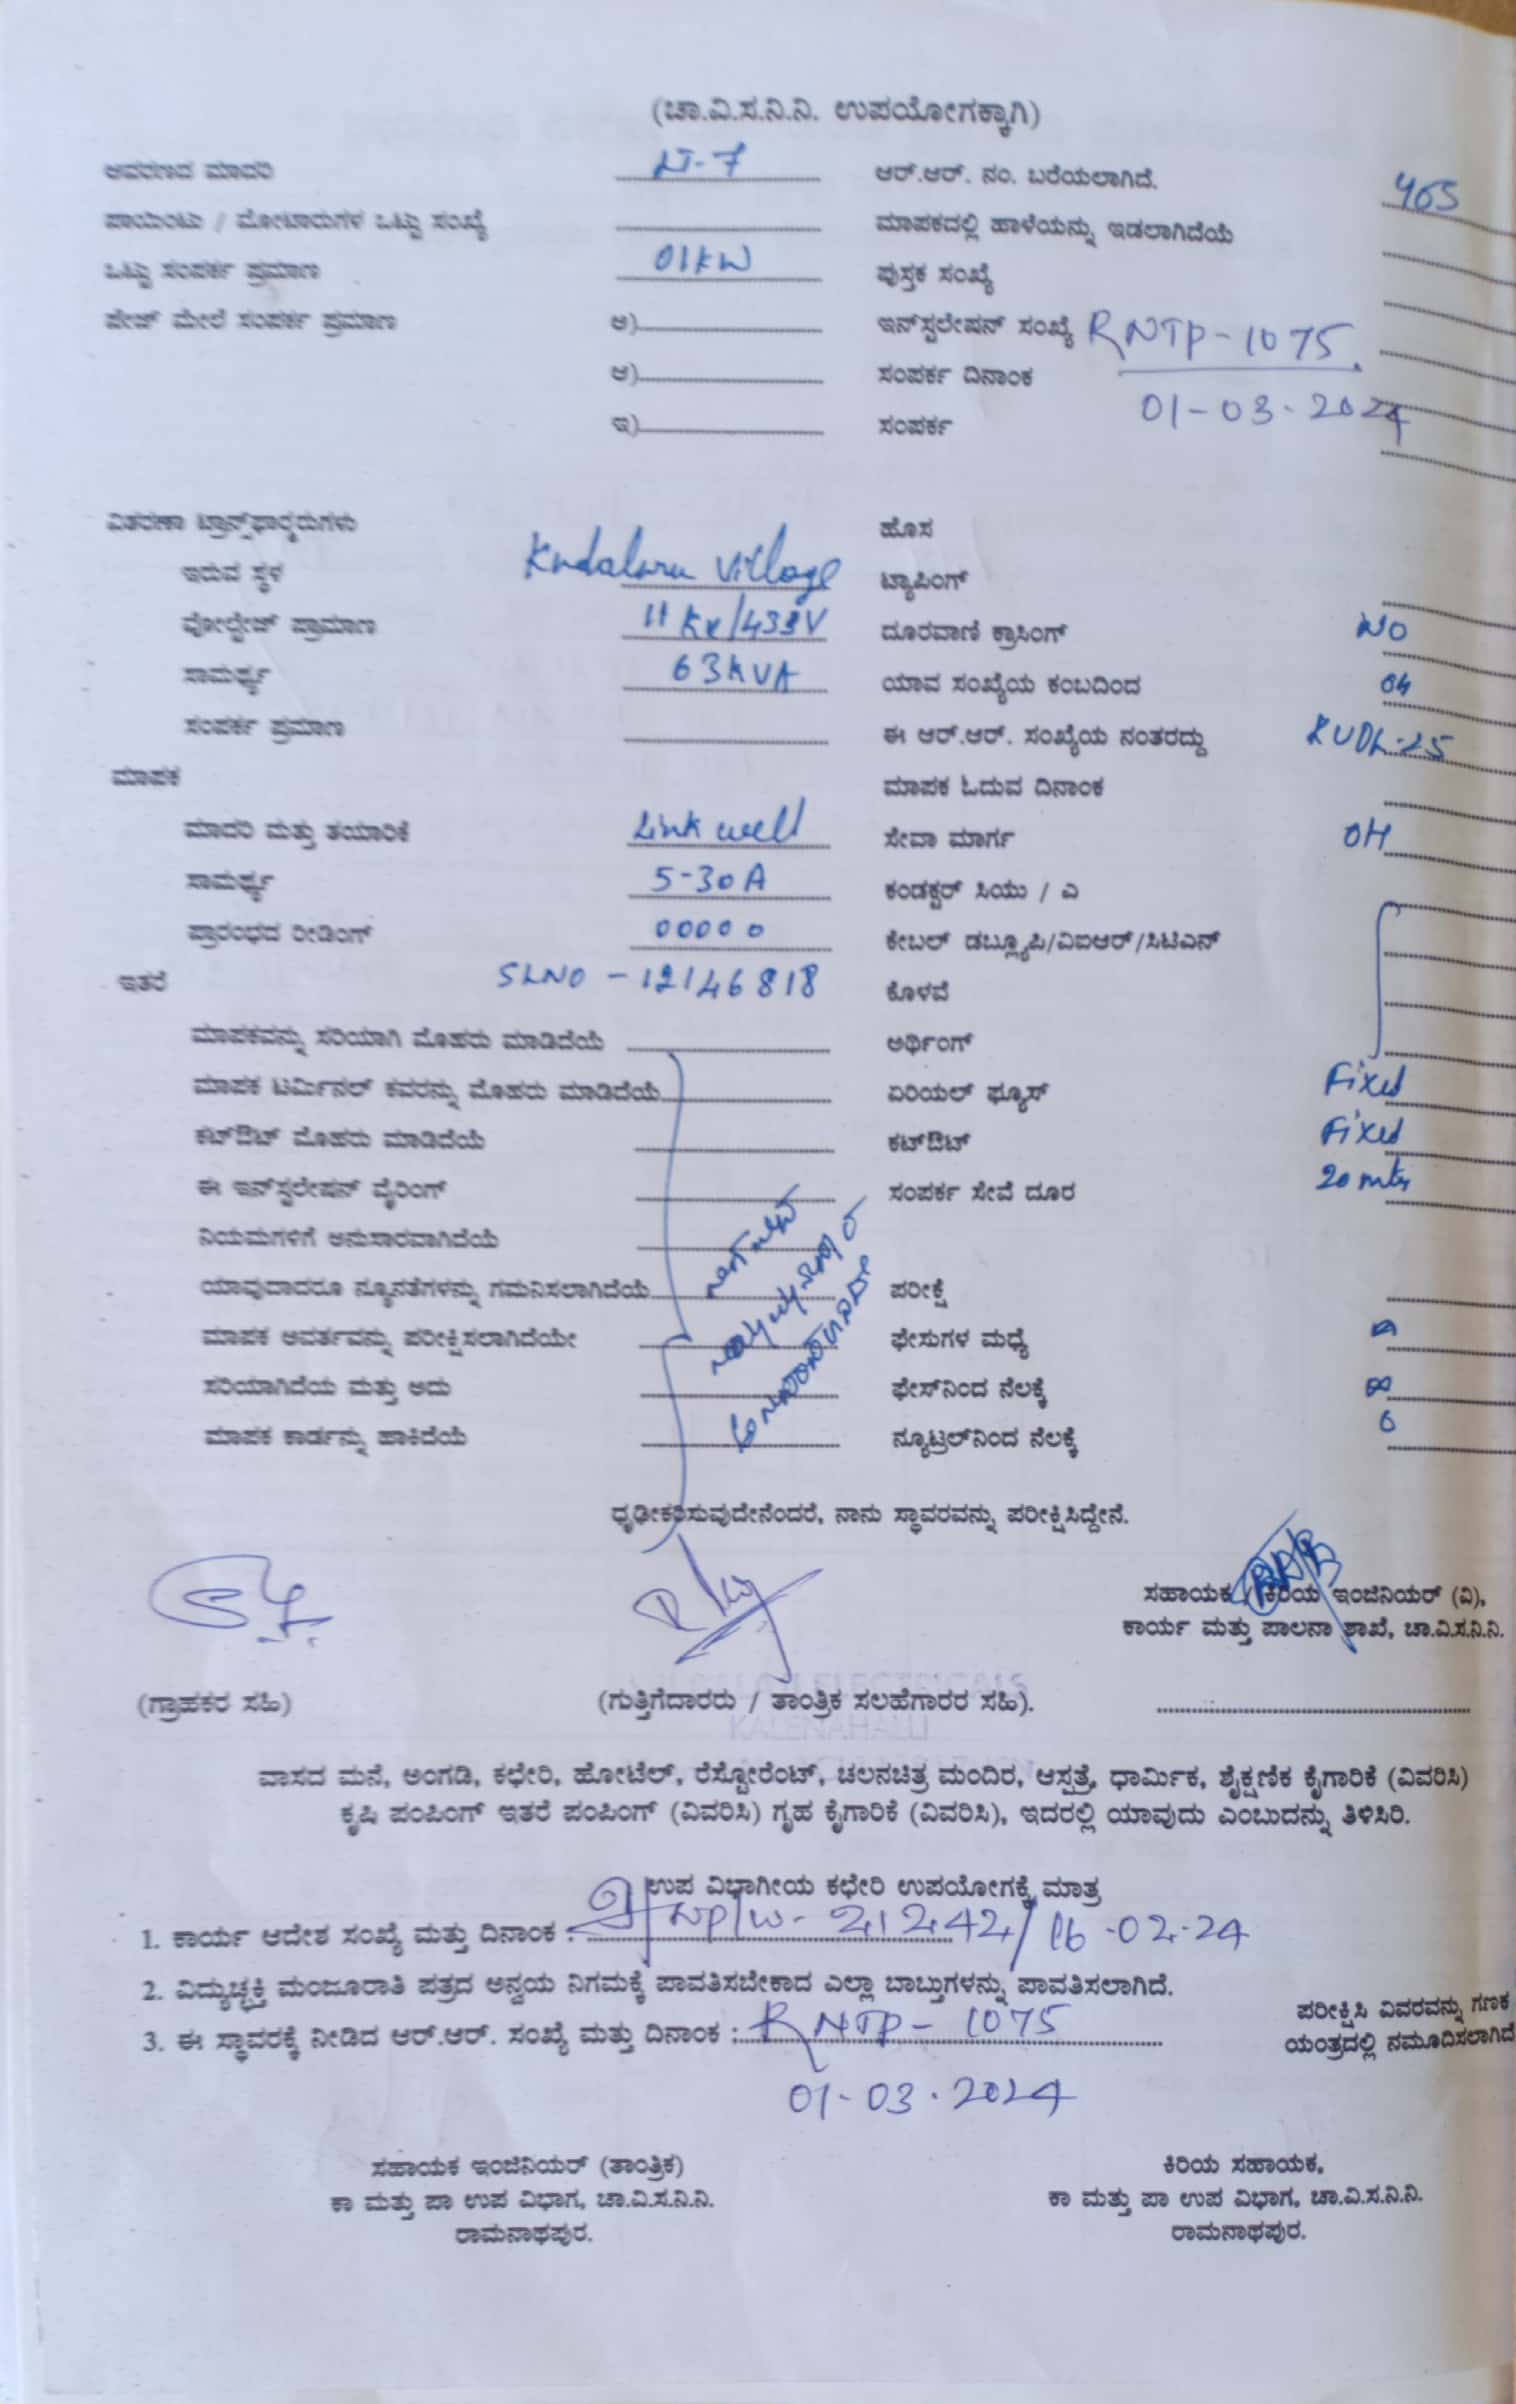 (ಚಾ.ವಿ.ಸ.ನಿ.ನಿ. ಉಪಯೋಗಕ್ಕಾಗಿ)
ಆವರಣದ ಮಾದರಿ LT-7 ಆರ್.ಆರ್. ನಂ. ಬರೆಯಲಾಗಿದೆ. 465
ಪಾಯಿಂಟು / ಮೋಟಾರುಗಳ ಒಟ್ಟು ಸಂಖ್ಯೆ ಮಾಪಕದಲ್ಲಿ ಹಾಳೆಯನ್ನು ಇಡಲಾಗಿದೆಯೆ
ಒಟ್ಟು ಸಂಪರ್ಕ ಪ್ರಮಾಣ 01KW ಪುಸ್ತಕ ಸಂಖ್ಯೆ
ಪೇಜ್ ಮೇಲೆ ಸಂಪರ್ಕ ಪ್ರಮಾಣ ಅ) ಇನ್‌ಸ್ಟಲೇಷನ್ ಸಂಖ್ಯೆ RNTP-1075.
ಆ) ಸಂಪರ್ಕ ದಿನಾಂಕ 01-03-2024
ಇ) ಸಂಪರ್ಕ
ವಿತರಣಾ ಟ್ರಾನ್ಸ್‌ಫಾರ್ಮರುಗಳು ಹೊಸ
ಇರುವ ಸ್ಥಳ Kudaluru Village ಟ್ಯಾಪಿಂಗ್
ವೋಲ್ಟೇಜ್ ಪ್ರಾಮಾಣ 11 KV/433V ದೂರವಾಣಿ ಕ್ರಾಸಿಂಗ್ NO
ಸಾಮರ್ಥ್ಯ 63KVA ಯಾವ ಸಂಖ್ಯೆಯ ಕಂಬದಿಂದ 04
ಸಂಪರ್ಕ ಪ್ರಮಾಣ ಈ ಆರ್.ಆರ್. ಸಂಖ್ಯೆಯ ನಂತರದ್ದು KUDL-25
ಮಾಪಕ ಮಾಪಕ ಓದುವ ದಿನಾಂಕ
ಮಾದರಿ ಮತ್ತು ತಯಾರಿಕೆ Link well ಸೇವಾ ಮಾರ್ಗ OH
ಸಾಮರ್ಥ್ಯ 5-30A ಕಂಡಕ್ಟರ್ ಸಿಯು / ಎ
ಪ್ರಾರಂಭದ ರೀಡಿಂಗ್ 00000 ಕೇಬಲ್ ಡಬ್ಲ್ಯೂಪಿ/ವಿಐಆರ್/ಸಿಟಿಎನ್
ಇತರೆ SLNO - 12146818 ಕೊಳವೆ
ಮಾಪಕವನ್ನು ಸರಿಯಾಗಿ ಮೊಹರು ಮಾಡಿದೆಯೆ ಅರ್ಥಿಂಗ್
ಮಾಪಕ ಟರ್ಮಿನಲ್ ಕವರನ್ನು ಮೊಹರು ಮಾಡಿದೆಯೆ ಏರಿಯಲ್ ಫ್ಯೂಸ್ Fixed
ಕಟ್‌ಔಟ್ ಮೊಹರು ಮಾಡಿದೆಯೆ ಕಟ್‌ಔಟ್ Fixed
ಈ ಇನ್‌ಸ್ಟಲೇಷನ್ ವೈರಿಂಗ್ ಸಂಪರ್ಕ ಸೇವೆ ದೂರ 20 mtr
ನಿಯಮಗಳಿಗೆ ಅನುಸಾರವಾಗಿದೆಯೆ
ಯಾವುದಾದರೂ ನ್ಯೂನತೆಗಳನ್ನು ಗಮನಿಸಲಾಗಿದೆಯೆ ಪರೀಕ್ಷೆ
ಮಾಪಕ ಅವರ್ತವನ್ನು ಪರೀಕ್ಷಿಸಲಾಗಿದೆಯೇ ಫೇಸುಗಳ ಮಧ್ಯೆ
ಸರಿಯಾಗಿದೆಯ ಮತ್ತು ಅದು ಫೇಸ್‌ನಿಂದ ನೆಲಕ್ಕೆ
ಮಾಪಕ ಕಾರ್ಡನ್ನು ಹಾಕಿದೆಯೆ ನ್ಯೂಟ್ರಲ್‌ನಿಂದ ನೆಲಕ್ಕೆ 0
ಧೃಢೀಕರಿಸುವುದೇನೆಂದರೆ, ನಾನು ಸ್ಥಾವರವನ್ನು ಪರೀಕ್ಷಿಸಿದ್ದೇನೆ.
ಸಹಾಯಕ / ಕಿರಿಯ ಇಂಜಿನಿಯರ್ (ವಿ),
ಕಾರ್ಯ ಮತ್ತು ಪಾಲನಾ ಶಾಖೆ, ಚಾ.ವಿ.ಸ.ನಿ.ನಿ.
(ಗ್ರಾಹಕರ ಸಹಿ) (ಗುತ್ತಿಗೆದಾರರು / ತಾಂತ್ರಿಕ ಸಲಹೆಗಾರರ ಸಹಿ).
KALENAHALLI
ವಾಸದ ಮನೆ, ಅಂಗಡಿ, ಕಛೇರಿ, ಹೋಟೆಲ್, ರೆಸ್ಟೋರೆಂಟ್, ಚಲನಚಿತ್ರ ಮಂದಿರ, ಆಸ್ಪತ್ರೆ, ಧಾರ್ಮಿಕ, ಶೈಕ್ಷಣಿಕ ಕೈಗಾರಿಕೆ (ವಿವರಿಸಿ)
ಕೃಷಿ ಪಂಪಿಂಗ್ ಇತರೆ ಪಂಪಿಂಗ್ (ವಿವರಿಸಿ) ಗೃಹ ಕೈಗಾರಿಕೆ (ವಿವರಿಸಿ), ಇದರಲ್ಲಿ ಯಾವುದು ಎಂಬುದನ್ನು ತಿಳಿಸಿರಿ.
ಉಪ ವಿಭಾಗೀಯ ಕಛೇರಿ ಉಪಯೋಗಕ್ಕೆ ಮಾತ್ರ
1. ಕಾರ್ಯ ಆದೇಶ ಸಂಖ್ಯೆ ಮತ್ತು ದಿನಾಂಕ : 21242/16-02-24
2. ವಿದ್ಯುಚ್ಛಕ್ತಿ ಮಂಜೂರಾತಿ ಪತ್ರದ ಅನ್ವಯ ನಿಗಮಕ್ಕೆ ಪಾವತಿಸಬೇಕಾದ ಎಲ್ಲಾ ಬಾಬ್ತುಗಳನ್ನು ಪಾವತಿಸಲಾಗಿದೆ.
3. ಈ ಸ್ಥಾವರಕ್ಕೆ ನೀಡಿದ ಆರ್.ಆರ್. ಸಂಖ್ಯೆ ಮತ್ತು ದಿನಾಂಕ : RNTP-1075
01-03-2024
ಪರೀಕ್ಷಿಸಿ ವಿವರವನ್ನು ಗಣಕ
ಯಂತ್ರದಲ್ಲಿ ನಮೂದಿಸಲಾಗಿದೆ
ಸಹಾಯಕ ಇಂಜಿನಿಯರ್ (ತಾಂತ್ರಿಕ) ಕಿರಿಯ ಸಹಾಯಕ,
ಕಾ ಮತ್ತು ಪಾ ಉಪ ವಿಭಾಗ, ಚಾ.ವಿ.ಸ.ನಿ.ನಿ. ಕಾ ಮತ್ತು ಪಾ ಉಪ ವಿಭಾಗ, ಚಾ.ವಿ.ಸ.ನಿ.ನಿ.
ರಾಮನಾಥಪುರ. ರಾಮನಾಥಪುರ.